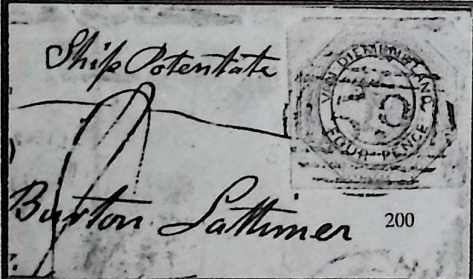 Ship Potentate
VAN DIEMEN'S LAND
FOUR PENCE
Burton Lattimer
200